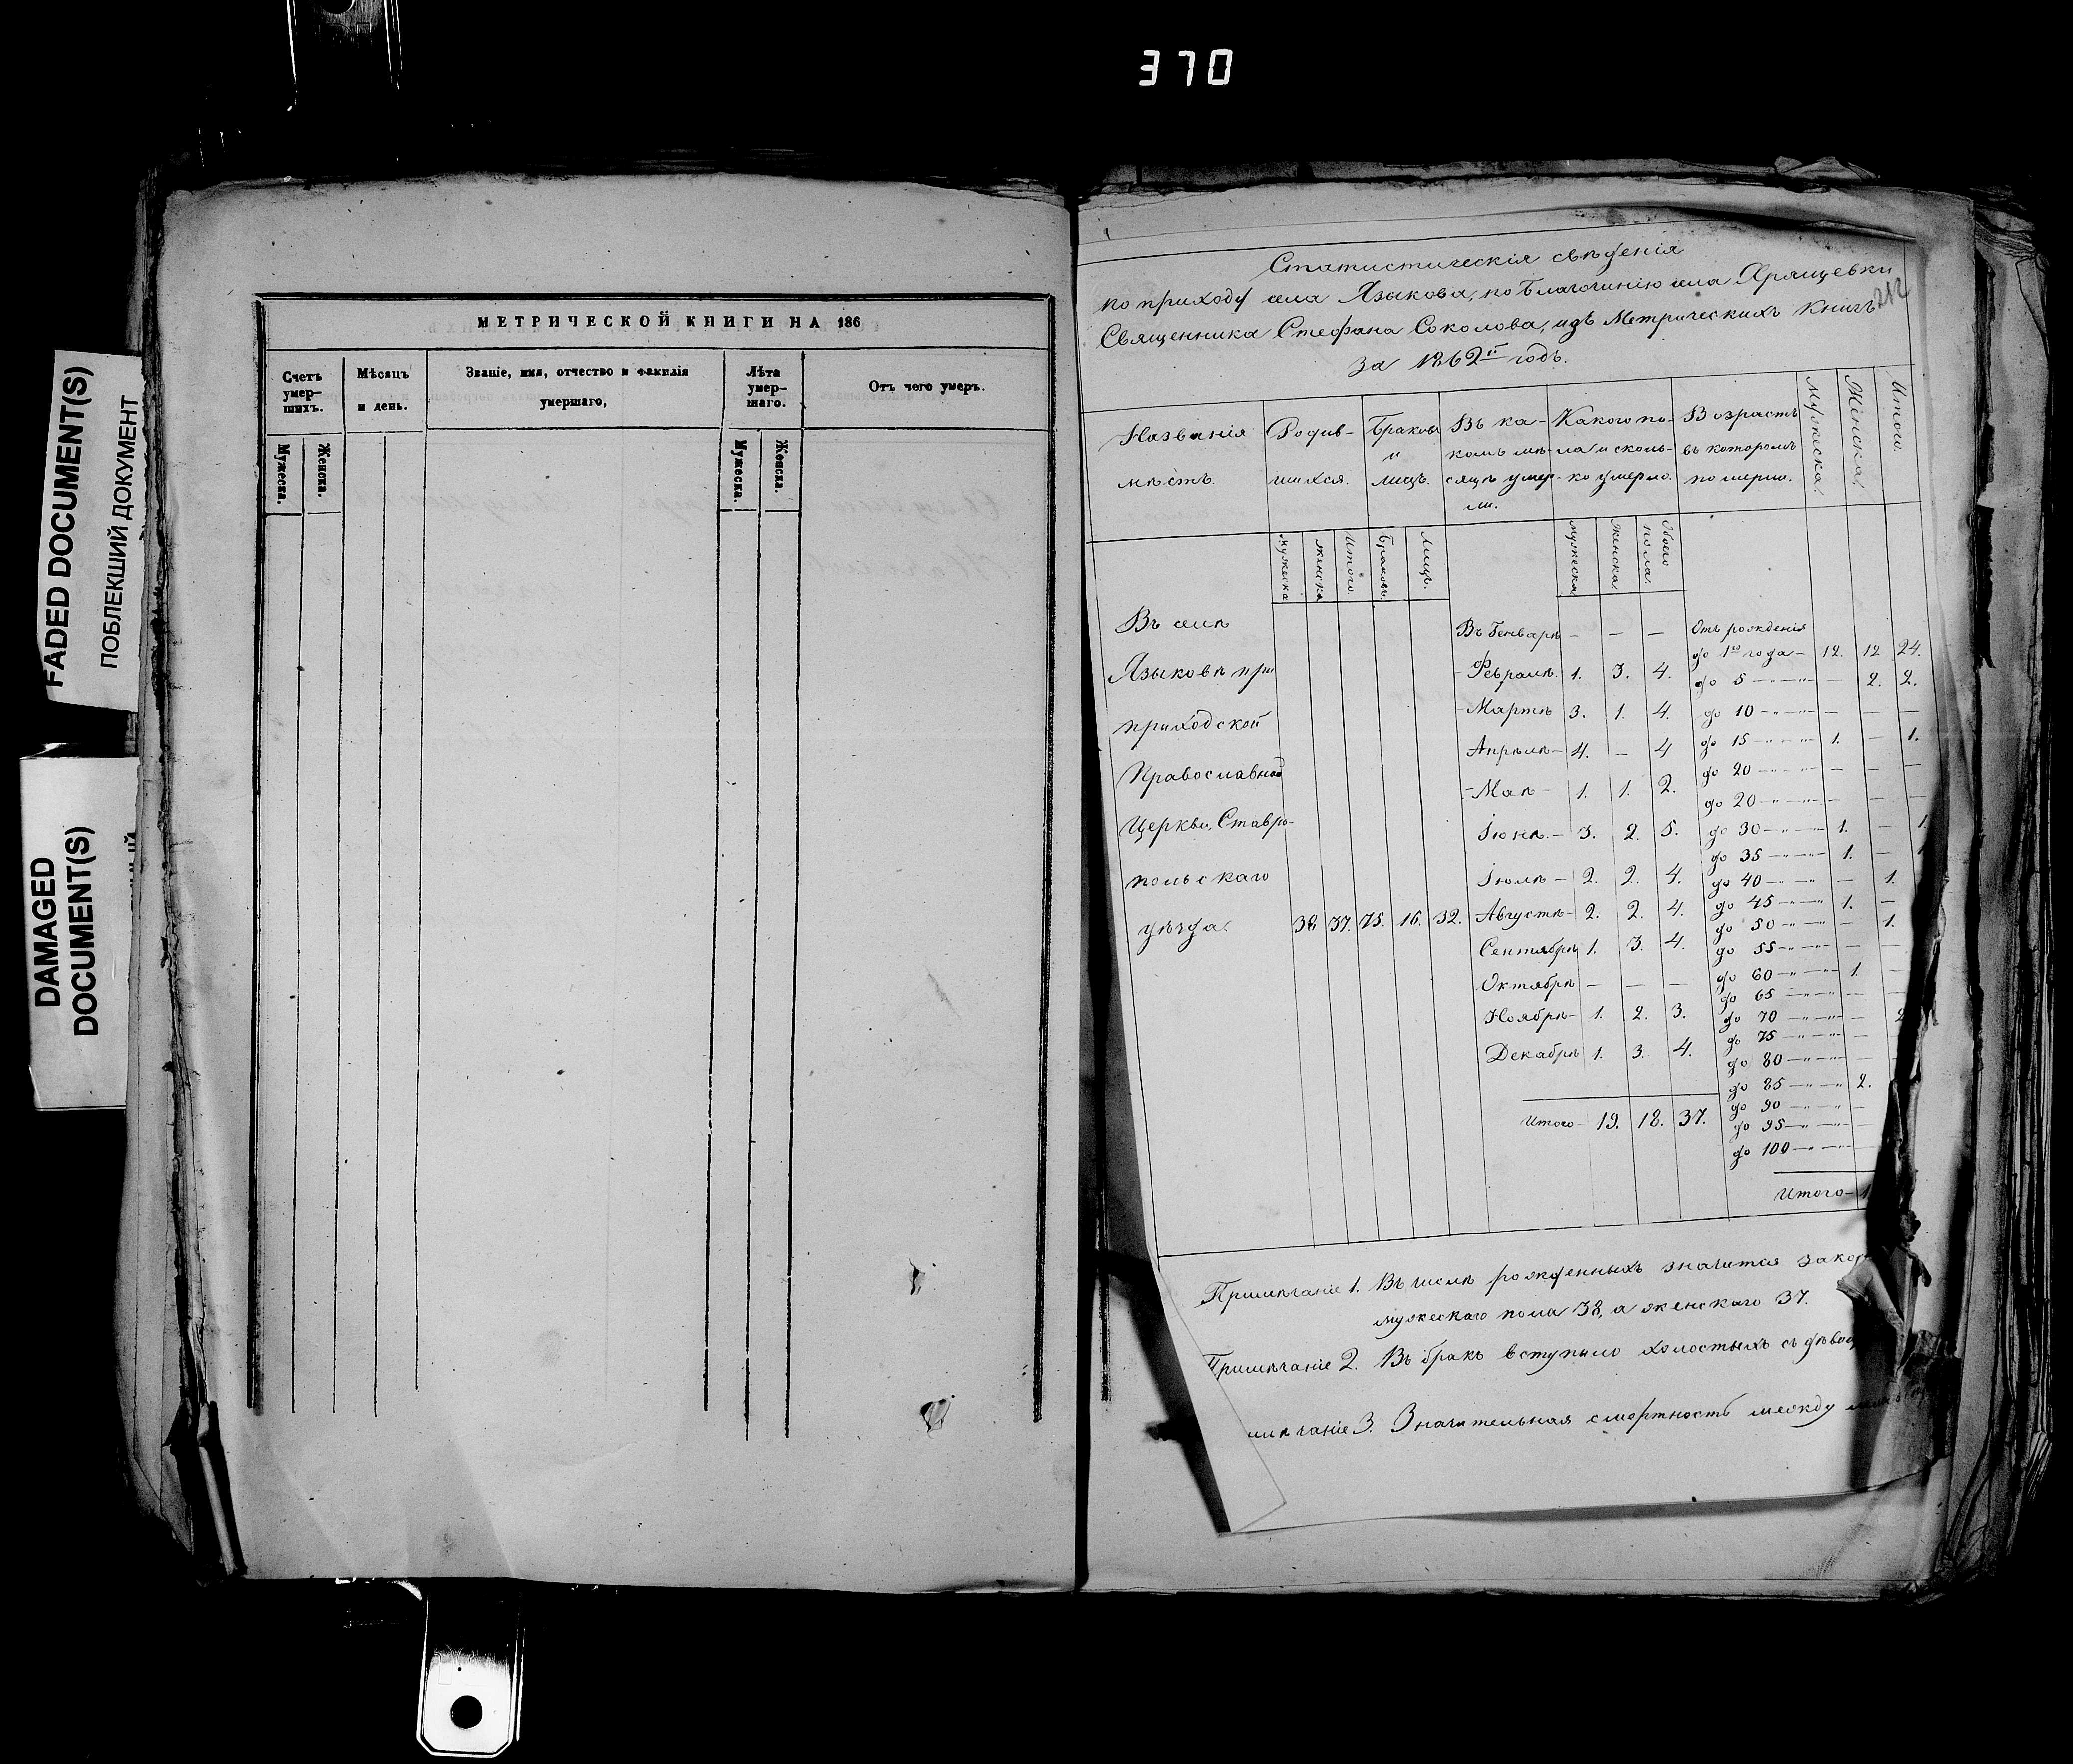 370
FADED DOCUMENT(S)
ПОБЛЕКШИЙ ДОКУМЕНТ
DAMAGED
DOCUMENT(S)
МЕТРИЧЕСКОЙ КНИГИ НА 186
Счетъ умер-шихъ.
Мѣсяцъ и день.
Званіе, имя, отчество и фамилія умершаго,
Лѣта умер-шаго.
Отъ чего умеръ.
Мужеска. Женска. Мужеска. Женска.
Статистическія свѣденія
по приходу села Языкова, по благочинію села Хрящевки
Священника Стефана Соколова, изъ Метрическихъ книгъ
за 1862й годъ.
212
Названія мѣстъ.
Родив-шихся.
Браковъ и лицъ.
Въ ка-комъ мѣ-сяцѣ умер-ли.
Какого по-ла и сколь-ко умерло.
Возрастъ въ которомъ померли.
Мужеска.
Женска.
Итого.
мужеска женска Итого. Браковъ. Лицъ. мужеска. женска. Обоего пола.
Въ селѣ
Языковѣ при
приходской
Православной
Церкви, Ставро-
польскаго
уѣзда. 38 37. 75. 16. 32.
Въ Генварѣ — — —
Февралѣ. 1. 3. 4.
Мартѣ 3. 1. 4.
Апрѣлѣ 4. — 4
Маѣ 1. 1. 2.
Іюнѣ. 3. 2. 5.
Іюлѣ 2. 2. 4.
Августѣ 2. 2. 4.
Сентябрѣ 1. 3. 4.
Октябрѣ — — —
Ноябрѣ 1. 2. 3.
Декабрѣ 1. 3. 4.
Итого 19. 18. 37.
Отъ рожденія
до 1го года 12. 12 24.
до 5 — 2. 2.
до 10 — — —
до 15 1. — 1.
до 20 — — —
до 20 — — —
до 30 1. — 1.
до 35 1. — 1
до 40 — 1.
до 45 1. —
до 50 — 1.
до 55 — —
до 60 1. —
до 65 — —
до 70 — 2
до 75 —
до 80 —
до 85 2.
до 90 —
до 95 —
до 100
Итого
Примѣчаніе 1. Въ числѣ рожденныхъ значится
мужескаго пола 38, а женскаго 37.
Примѣчаніе 2. Въ бракъ вступило холостыхъ съ
мѣчаніе 3. Значительная смертность между